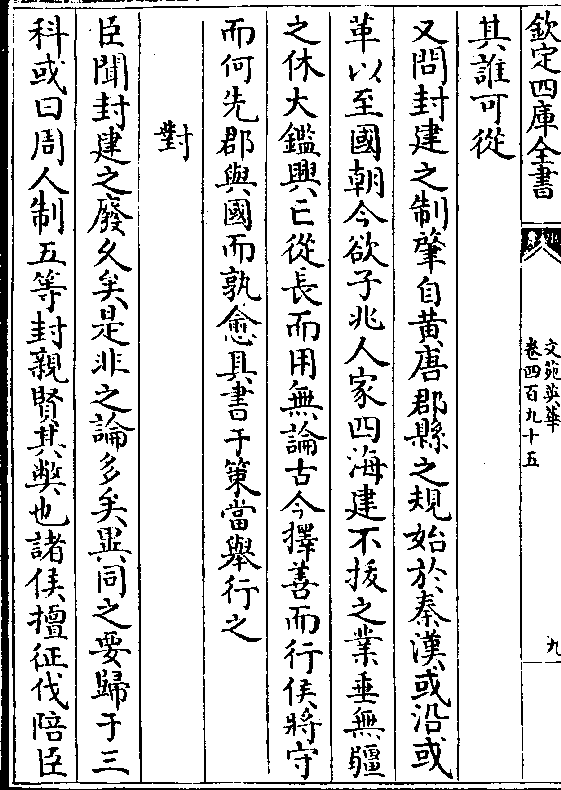 欽定四庫全書
文苑英華
卷四百九十五
九
其誰可從
又問封建之制肇自黄唐郡縣之規始於秦漢或沿或
革以至國朝今欲子兆人家四海建不拔之業垂無疆
之休大鑑興亡從長而用無論古今擇善而行侯將守
而何先郡與國而孰愈具書于策當舉行之
對
臣聞封建之廢久矣是非之論多矣異同之要歸于三
科或曰周人制五等封親賢其弊也諸侯擅征伐陪臣